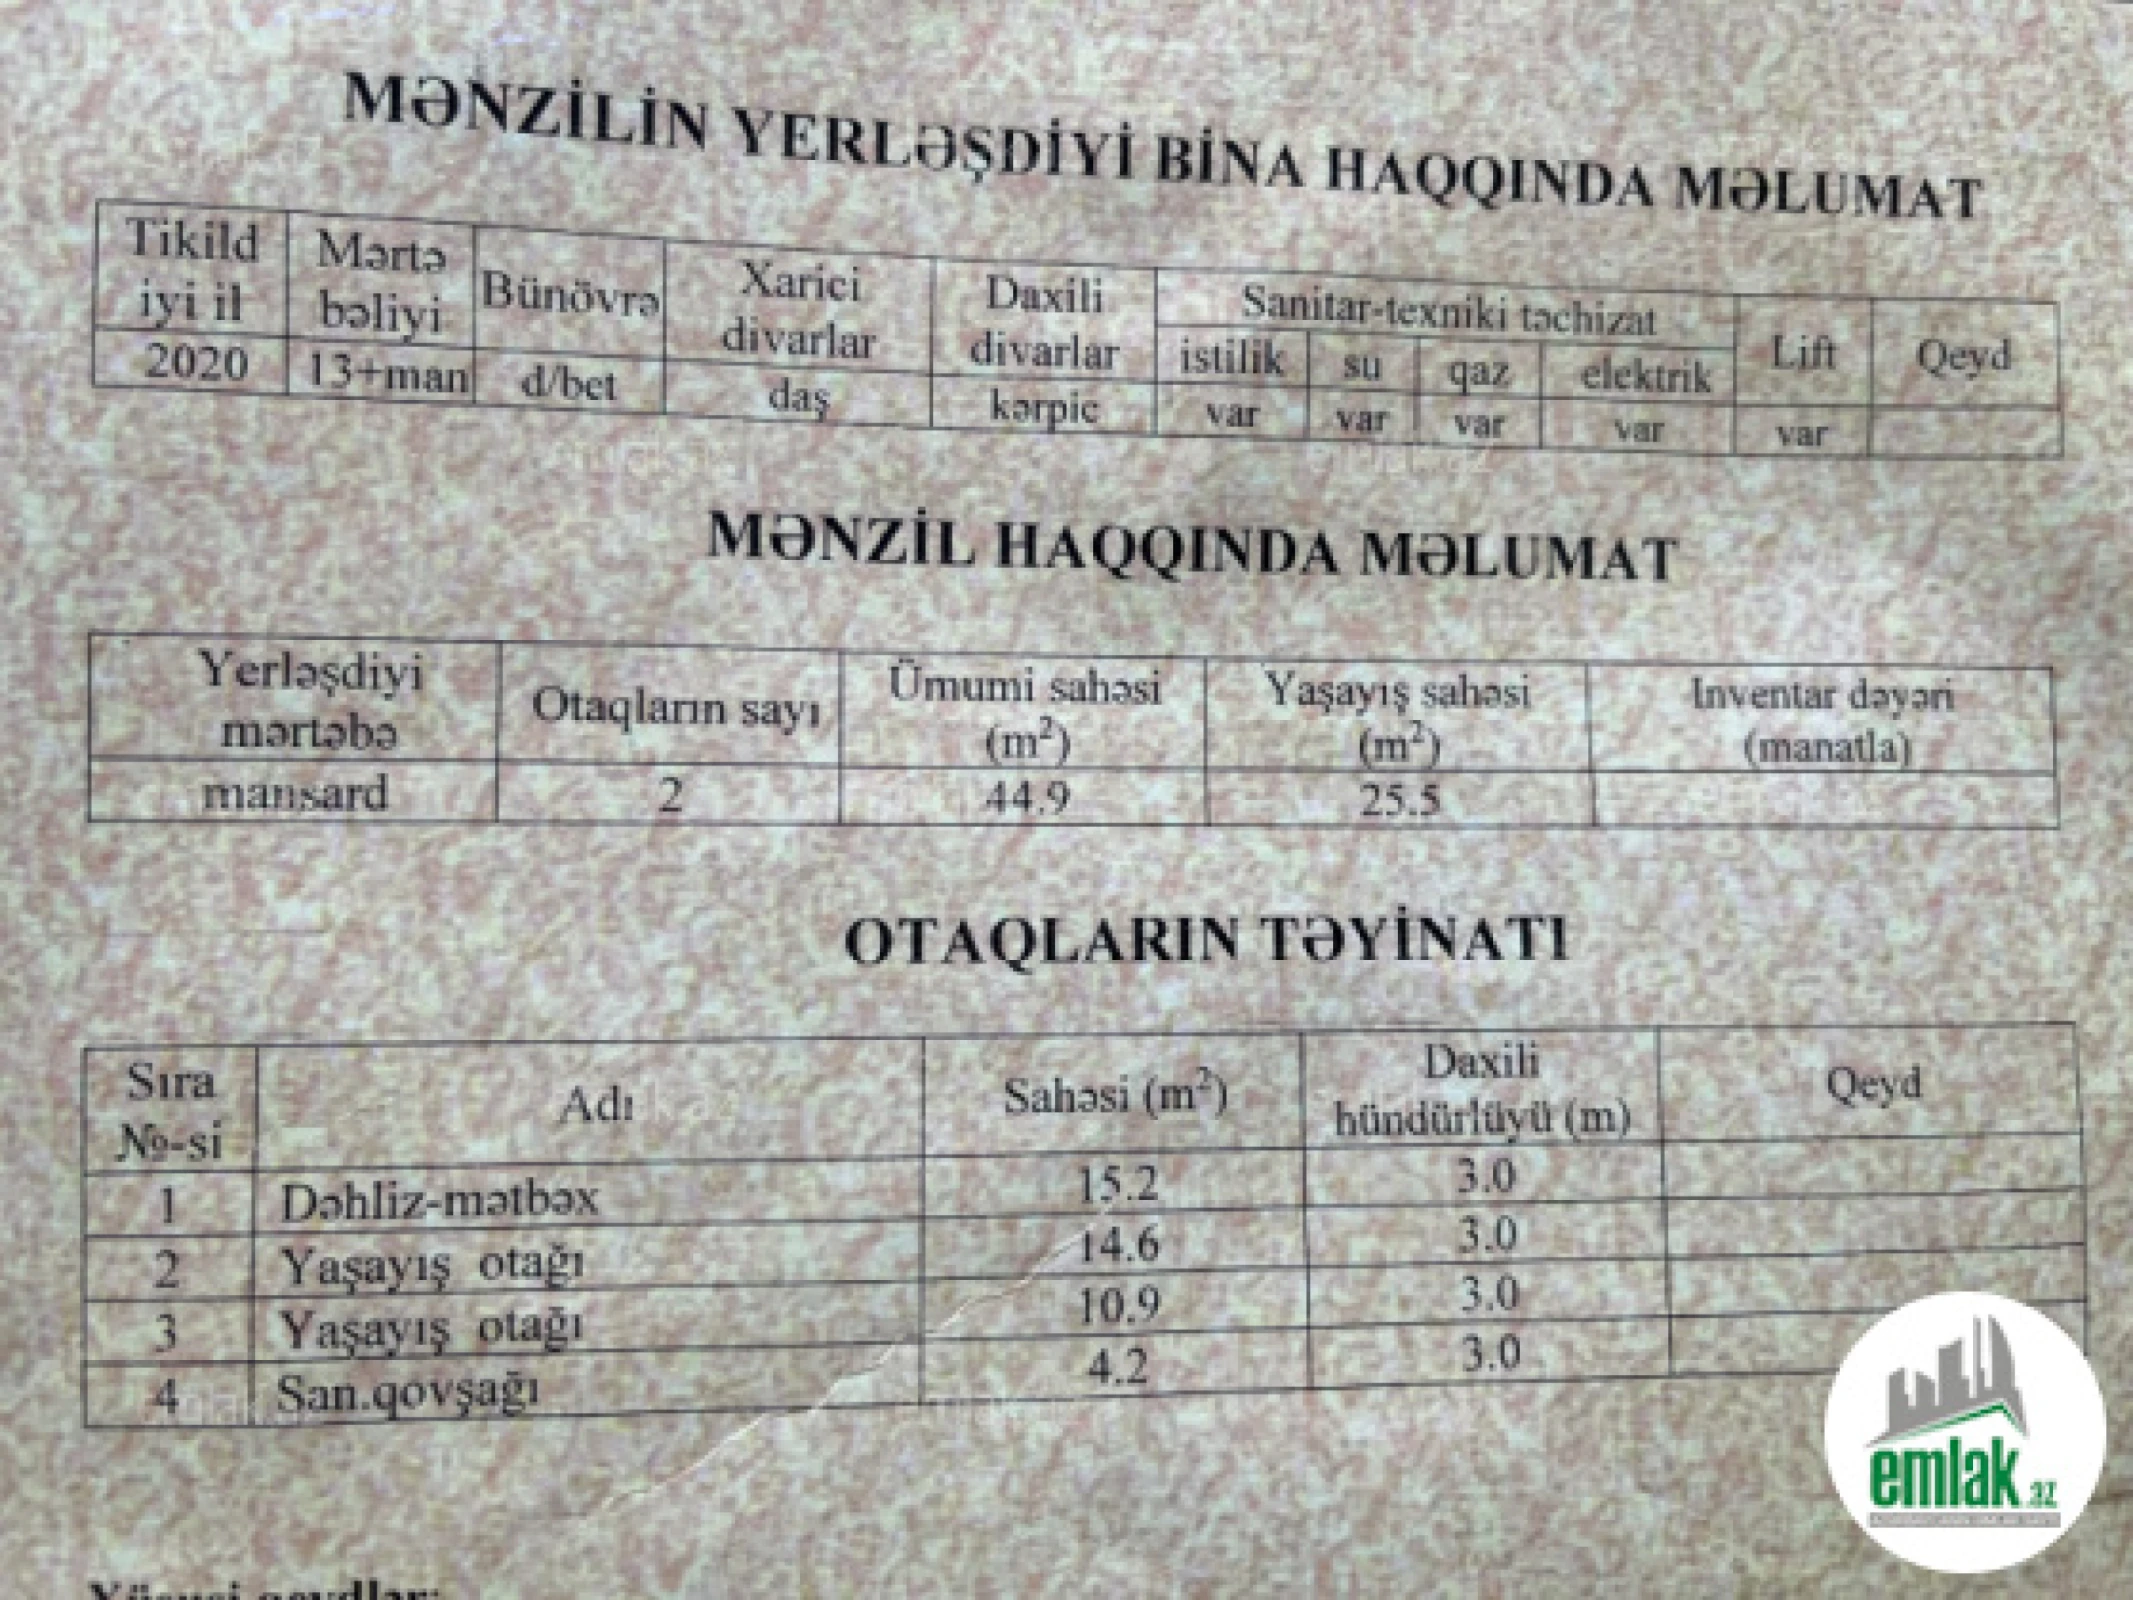 MƏNZİLİN YERLƏŞDİYİ BİNA HAQQINDA MƏLUMAT
Tikild
iyi il
Mərtə
bəliyi
Bünövrə
Xarici
divarlar
Daxili
divarlar
Sanitar-texniki təchizat
istilik su qaz elektrik
Lift
Qeyd
2020 13+man d/bet daş kərpic var var var var var
MƏNZİL HAQQINDA MƏLUMAT
Yerləşdiyi
mərtəbə
Otaqların sayı
Ümumi sahəsi
(m²)
Yaşayış sahəsi
(m²)
Inventar dəyəri
(manatla)
mansard 2 44.9 25.5
OTAQLARIN TƏYİNATI
Sıra
№-si
Adı
Sahəsi (m²)
Daxili
hündürlüyü (m)
Qeyd
1 Dəhliz-mətbəx 15.2 3.0
2 Yaşayış otağı 14.6 3.0
3 Yaşayış otağı 10.9 3.0
4 San.qovşağı 4.2 3.0
emlak.az